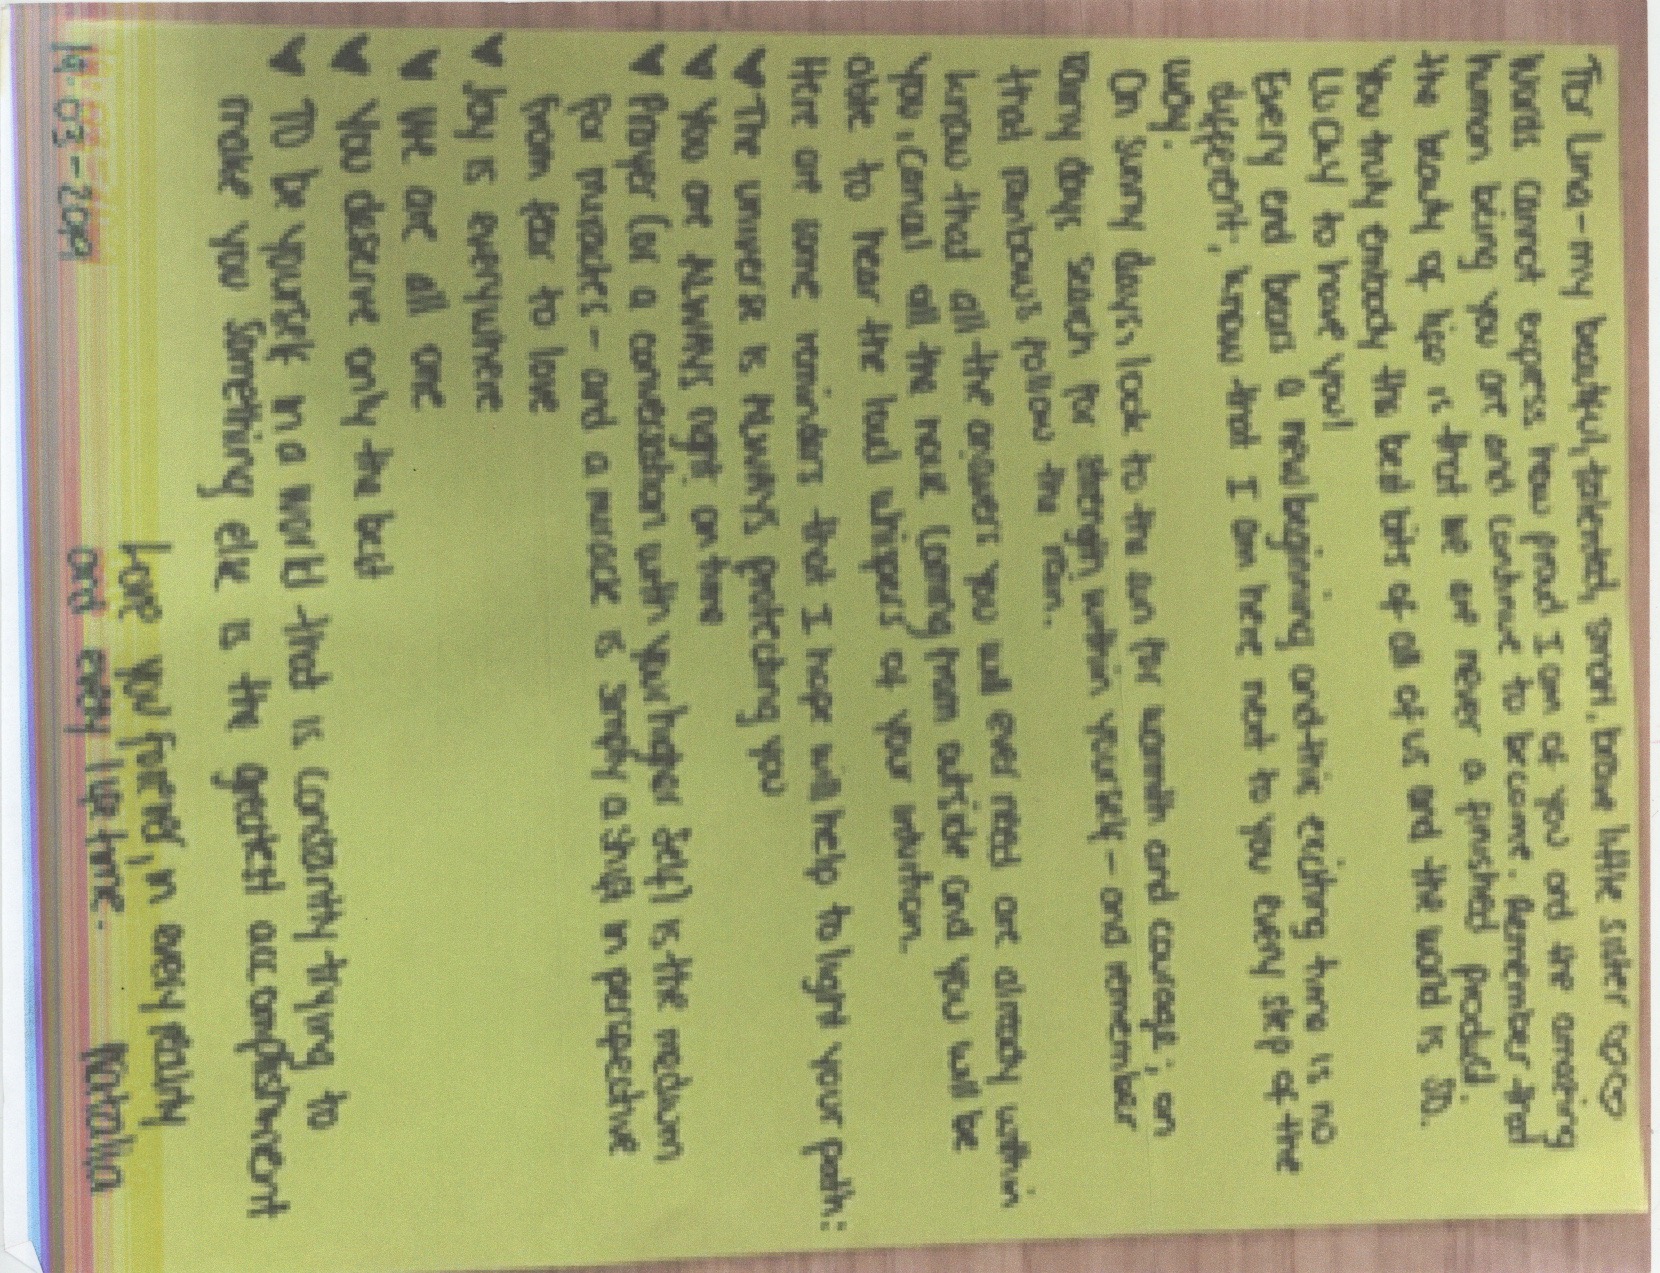 For Luna - my beautiful, talented, smart, brave little sister ♡♡
Words cannot express how proud I am of you and the amazing
human being you are and continue to become. Remember that
the beauty of life is that we are never a finished product.
You truly embody the best bits of all of us and the world is SO.
Lucky to have you!
Every end bears a new beginning and this exciting time is no
different, know that I am here next to you every step of the
way.
On sunny days, look to the sun for warmth and courage; on
rainy days search for strength within yourself - and remember
that rainbows follow the rain.
know that all the answers you will ever need are already within
you, cancel all the noise coming from outside and you will be
able to hear the loud whispers of your intuition.
Here are some reminders that I hope will help to light your path:
♥ The universe is ALWAYS protecting you
♥ You are ALWAYS right on time
♥ Prayer (or a conversation with your higher self) is the medium
for miracles - and a miracle is simply a shift in perspective
from fear to love
♥ Joy is everywhere
♥ We are all one
♥ You deserve only the best
♥ To be yourself in a world that is constantly trying to
make you something else is the greatest accomplishment
Love you forever, in every reality
and every life time. Natalia
19-03-2019